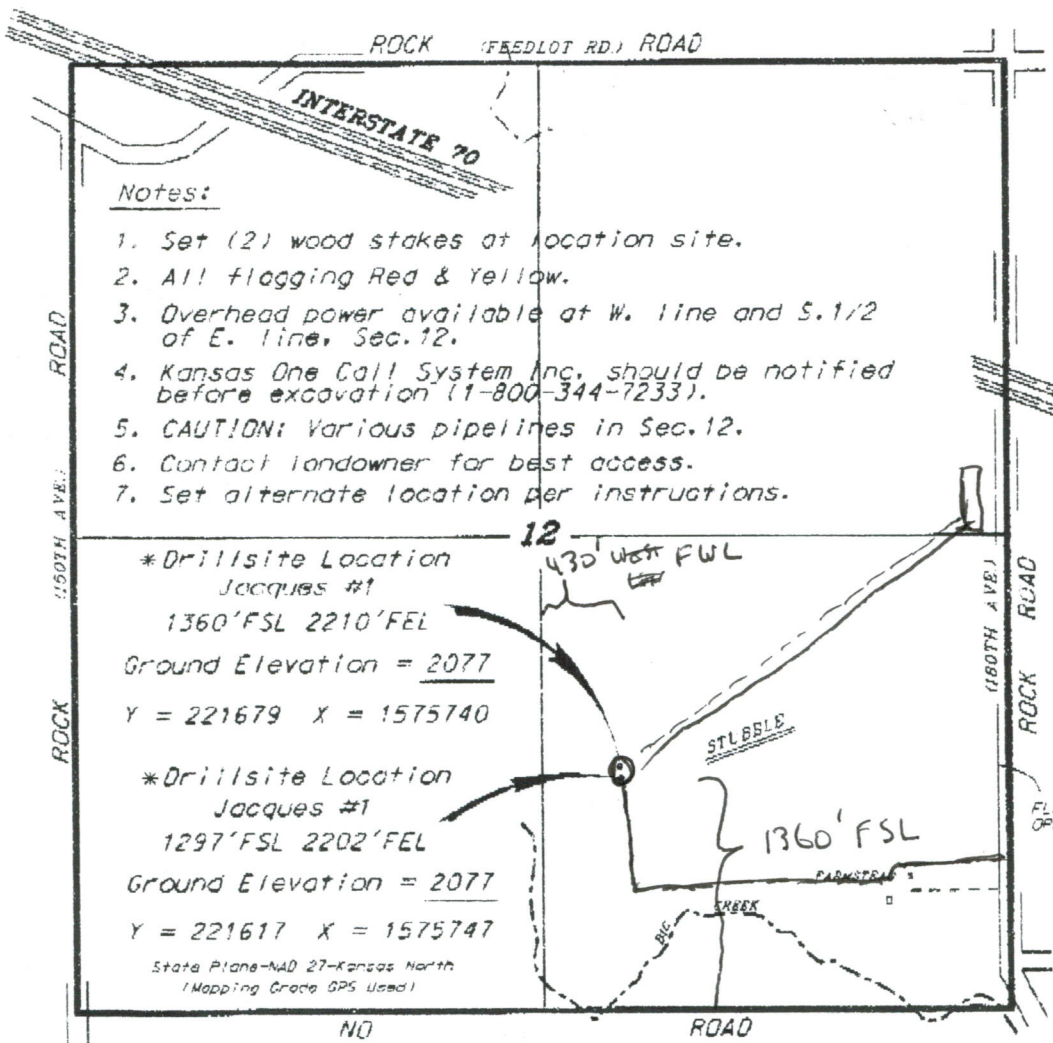 ROCK (FEEDLOT RD.) ROAD
INTERSTATE 70
Notes:
1. Set (2) wood stakes at location site.
2. All flagging Red & Yellow.
3. Overhead power available at W. line and S.1/2
of E. line, Sec.12.
4. Kansas One Call System Inc. should be notified
before excavation (1-800-344-7233).
5. CAUTION: Various pipelines in Sec.12.
6. Contact landowner for best access.
7. Set alternate location per instructions.
ROCK (150TH AVE.) ROAD
12
430' FWL
*Drillsite Location
Jacques #1
1360'FSL 2210'FEL
Ground Elevation = 2077
Y = 221679 X = 1575740
*Drillsite Location
Jacques #1
1297'FSL 2202'FEL
Ground Elevation = 2077
Y = 221617 X = 1575747
State Plane-NAD 27-Kansas North
(Mapping Grade GPS Used)
STUBBLE
1360' FSL
FARMSTEAD
BIG CREEK
(180TH AVE.)
ROCK ROAD
NO ROAD